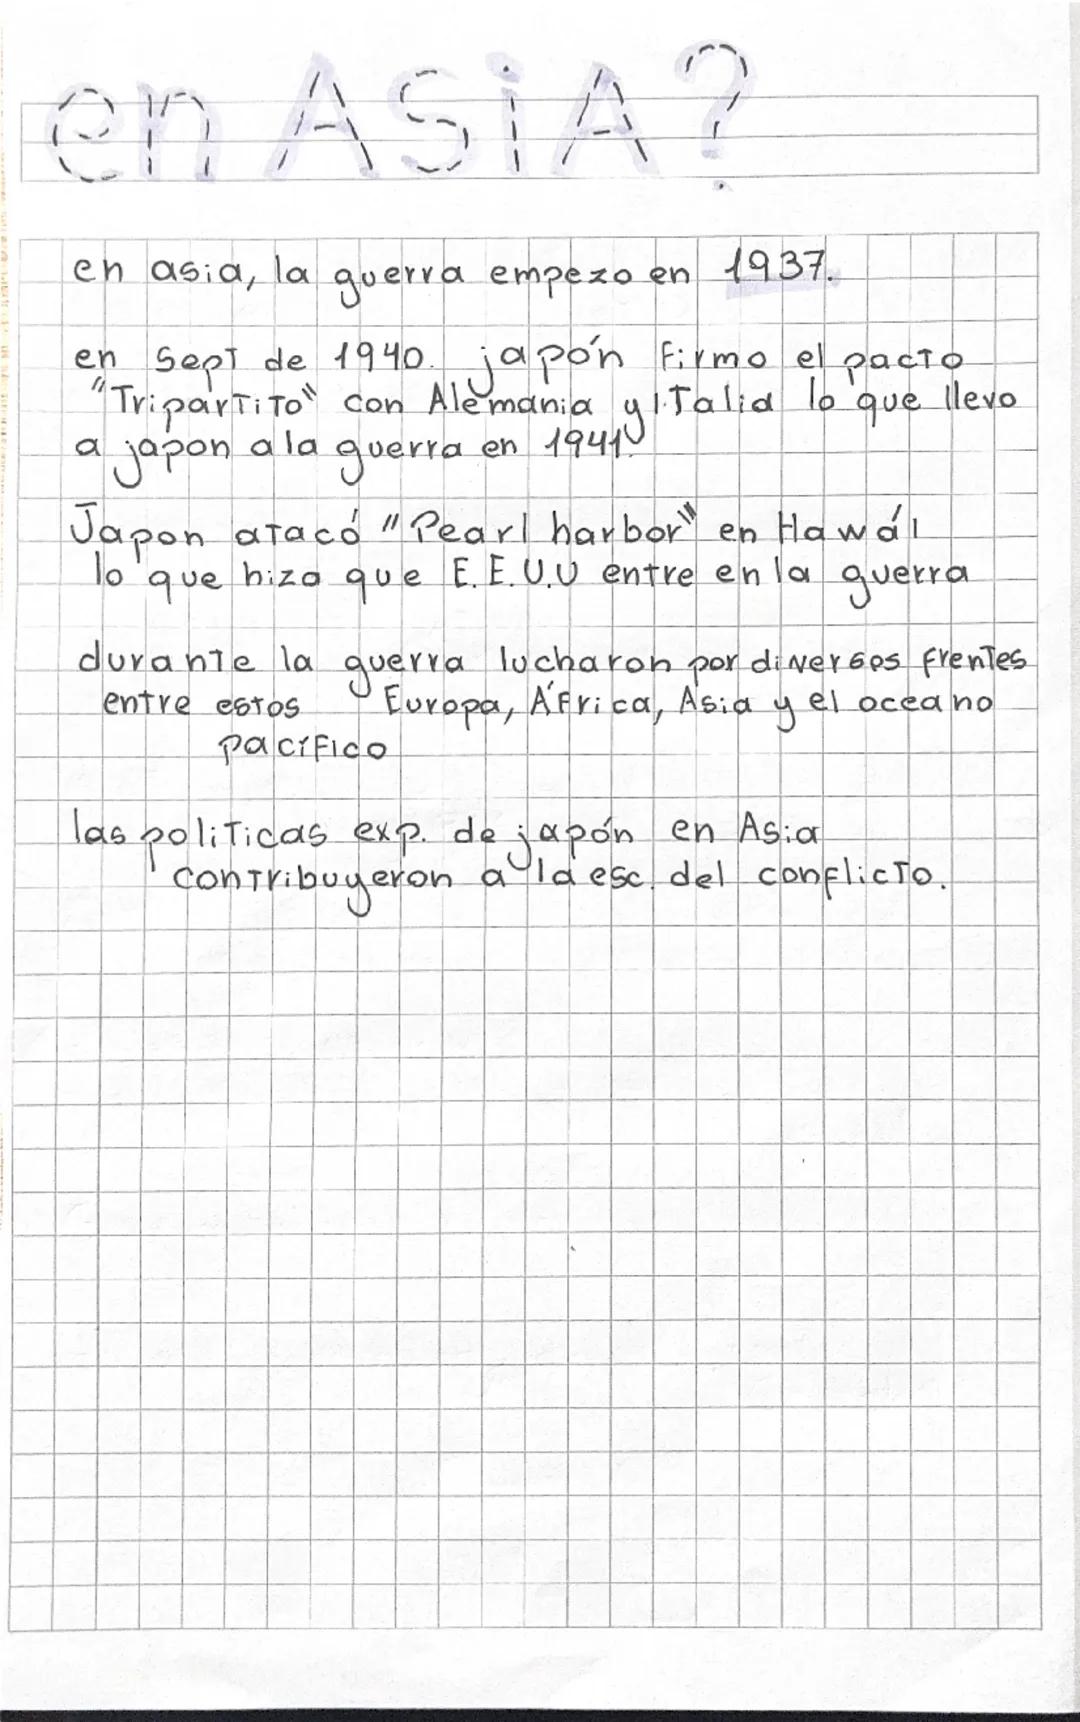 en ASiA?
en asia, la guerra empezo en 1937.
en Sept de 1940. japón firmo el pacto
"Tripartito" con Alemania y Italia lo que llevo
a japon a la guerra en 1941.
Japon atacó "Pearl harbor" en Hawái
lo que hizo que E.E.U.U entre en la guerra
durante la guerra lucharon por diversos frentes
entre estos Europa, África, Asia y el oceano
pacífico
las politicas exp. de japón en Asia
contribuyeron a la esc. del conflicto.